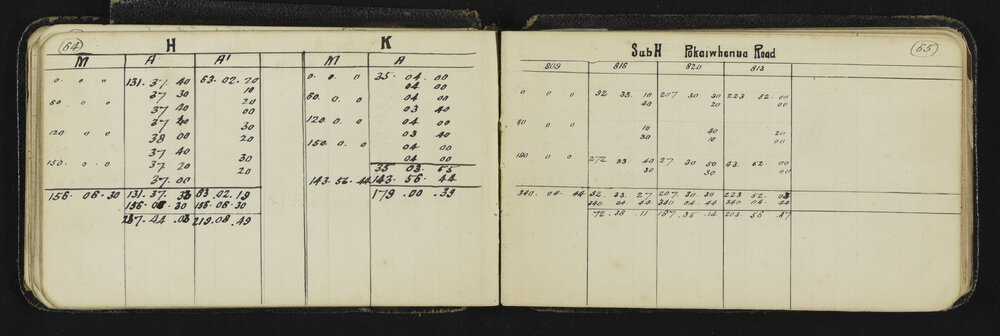 64
H K
M A A' M A
0. 0. 0 131. 37. 40 63. 02. 20 0. 0. 0 35. 04. 00
37 30 10 04. 00
60. 0. 0 37 40 20 60. 0. 0 04. 00
37 40 00 03 40
120. 0. 0 37 20 30 120. 0. 0 04. 00
38 00 20 03 40
150. 0. 0 37 40 30 150. 0. 0 04 00
37 20 20 04 00
37. 00 35 03. 55
156. 06. 30 131. 37. 33 63. 02. 19 143. 56. 44 143. 56. 44
156. 06. 30 156. 06. 30 179. 00. 39
287. 44. 03 219. 08. 49
65
Sub H Pokaiwhenua Road
809 816 820 813
0 0 0 92 33. 10 207 30 30 223 52. 00
40 20 00
60 0 0 10 40 20
30 10 00
180 0 0 272 33 40 27 30 50 43. 52. 00
30 30 00
340. 04. 44 92 33. 27 207. 30. 30 223. 52. 03
340. 04. 44 340 04. 44 340 04. 44
72. 38. 11 187. 35. 14 203. 56. 47